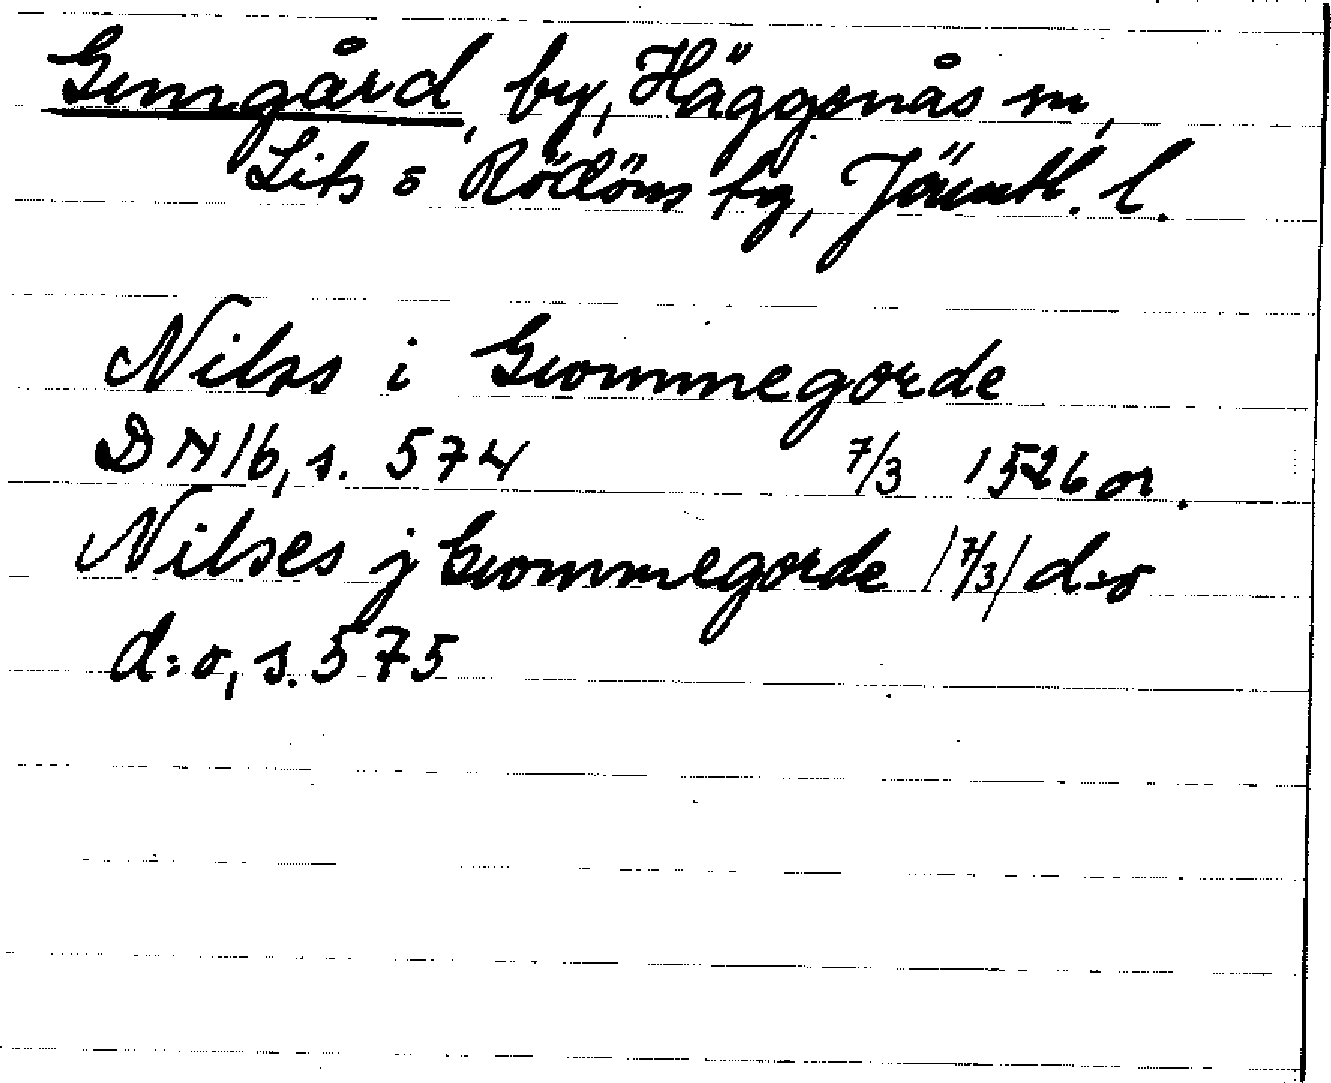 Gumgård, by, Häggenås sn,
Lits o Rödöns tg, Jämtl. l.
Nilss i Gwommegorde
DN 16, s. 574 7/3 1526 or.
Nilses j Gwommegorde /7/3/ d:o
d:o, s. 575